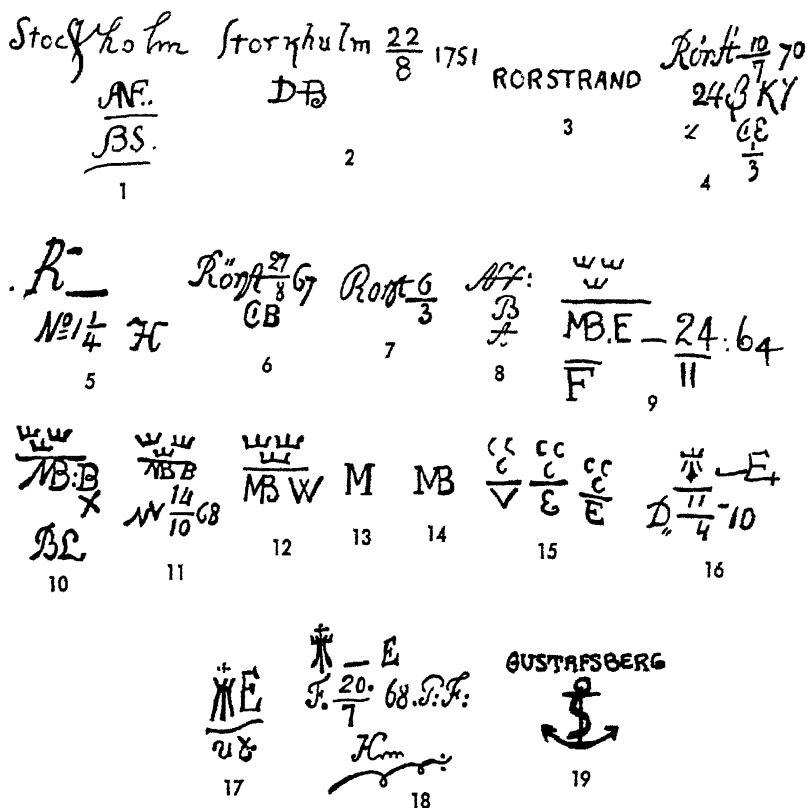 Stockholm
ANF..
BS.
1
Storkhulm 22/8 1751
DB
2
RORSTRAND
3
Rörst 10/7 70
24 β KY
CE
1/3
4
R
№ 1 1/4 H
5
Rörst 27/8 67
CB
6
Rorst 6/3
7
Aff:
B
A.
8
MB.E — 24/11 : 64
F
9
MB:B
X
BL
10
MB B
14/10 68
11
MB W
12
M
13
MB
14
C C C C C C
C C C
V E E
15
— E
D,, 11/4 - 10
16
E
17
— E
F. 20./7 68. P: F:
Hm
18
GUSTAFSBERG
19